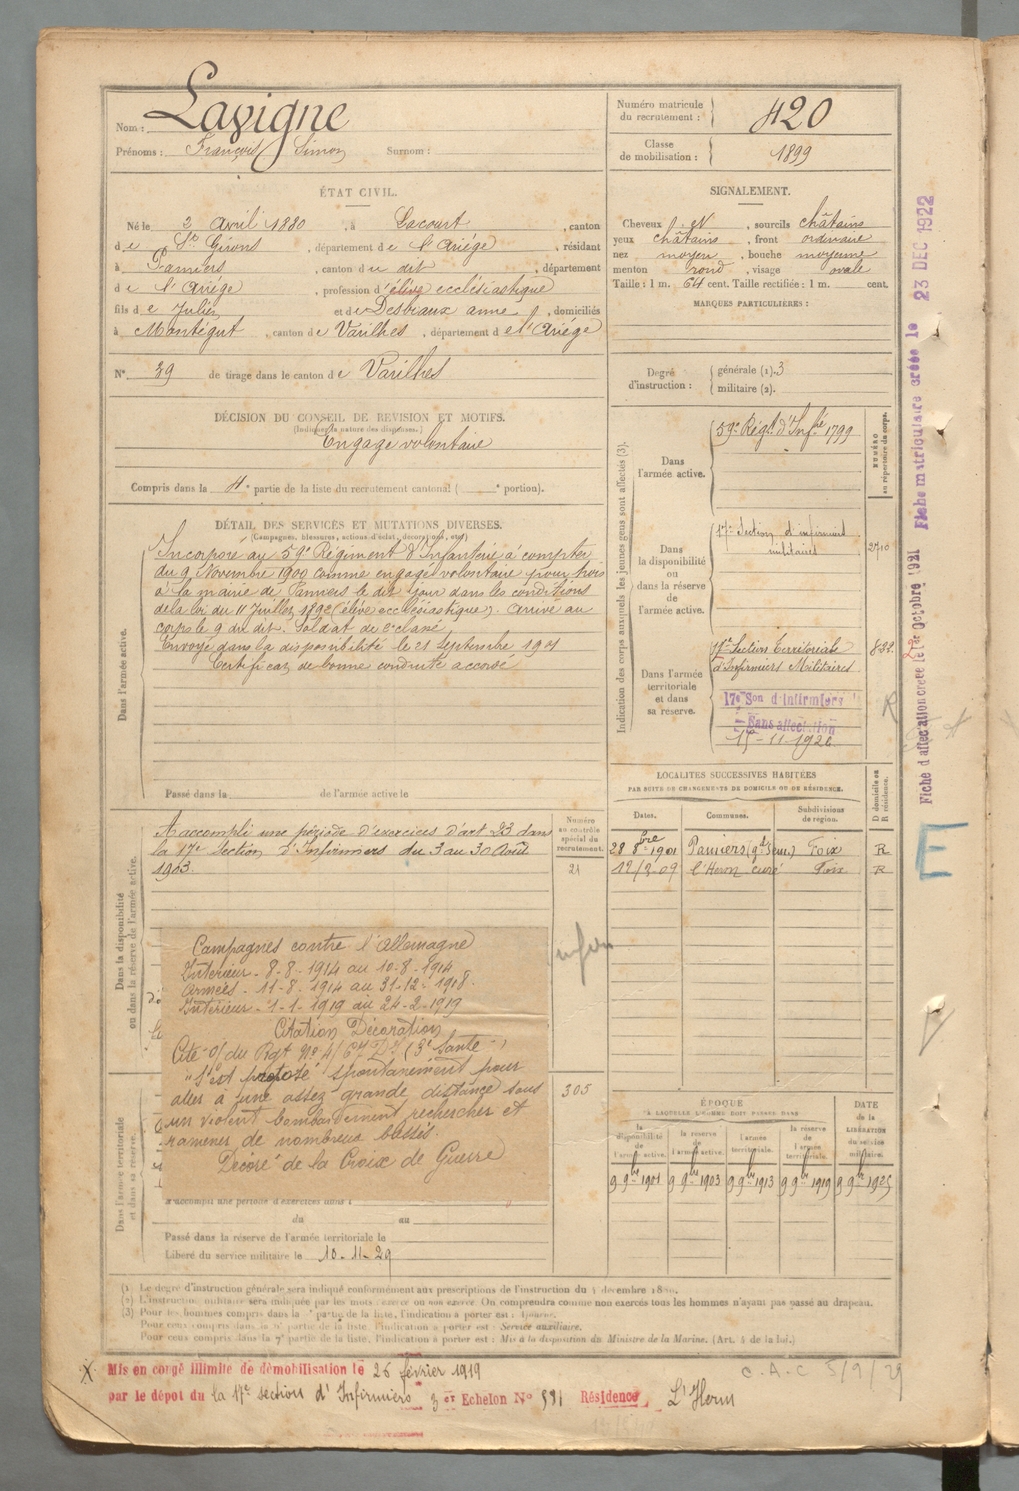 Nom : Lavigne
Prénoms : François Simon Surnom :
Numéro matricule du recrutement : 420
Classe de mobilisation : 1899
ÉTAT CIVIL.
Né le 2 Avril 1880, à Lacourt, canton
de St Girons, département de l'Ariége, résidant
à Pamiers, canton du dit, département
de l'Ariége, profession d'élève ecclésiastique
fils de Julien et de Desbiaux anne, domiciliés
à Montégut, canton de Varilhes, département de l'Ariége
N° 39 de tirage dans le canton de Varilhes
DÉCISION DU CONSEIL DE REVISION ET MOTIFS.
(Indiquer la nature des dispenses.)
Engagé volontaire
Compris dans la 4e partie de la liste du recrutement cantonal ( e portion).
DÉTAIL DES SERVICES ET MUTATIONS DIVERSES.
(Campagnes, blessures, actions d'éclat, décorations, etc.)
Dans l'armée active.
Incorporé au 59e Régiment d'Infanterie à compter
du 9 Novembre 1900 comme engagé volontaire pour trois
à la mairie de Pamiers le dit jour dans les conditions
de la loi du 11 Juillet 1892 (élève ecclésiastique). Arrivé au
corps le 9 du dit. Soldat de 2e classe.
Envoyé dans la disponibilité le 21 Septembre 1901
Certificat de bonne conduite accordé
Passé dans la de l'armée active le
Dans la disponibilité ou dans la réserve de l'armée active.
A accompli une période d'exercices d'art 23 dans
la 17e Section d'Infirmiers du 3 au 30 Août
1903.
Numéro au contrôle spécial du recrutement.
21
Campagnes contre l'Allemagne
Intérieur - 8-8-1914 au 10-8-1914
Armées - 11-8-1914 au 31-12-1918.
Intérieur - 1-1-1919 au 24-2-1919
Citation Décoration
Cité O/ du Rgt No 4/ (Santé)
"S'est proposé spontanément pour
aller à une assez grande distance sous
un violent bombardement rechercher et
ramener de nombreux blessés.
Décoré de la Croix de Guerre
305
Dans l'armée territoriale et dans sa réserve.
A accompli une période d'exercices dans l
du au
Passé dans la réserve de l'armée territoriale le
Libéré du service militaire le 10-11-29
SIGNALEMENT.
Cheveux , sourcils châtains
yeux châtains, front ordinaire
nez moyen, bouche moyenne
menton rond, visage ovale
Taille : 1 m. 64 cent. Taille rectifiée : 1 m. cent.
MARQUES PARTICULIÈRES :
Degré d'instruction : générale (1). 3
militaire (2).
Indication des corps auxquels les jeunes gens sont affectés (3).
NUMÉRO au répertoire du corps.
Dans l'armée active.
59e Régt d'Infie 1799
Dans la disponibilité ou dans la réserve de l'armée active.
17e Section d'infirmiers
militaires
2710
Dans l'armée territoriale et dans sa réserve.
17e Section Territoriale
d'Infirmiers Militaires
822
17e Son d'Infirmiers
Sans affectation
15-11-1926
R
LOCALITES SUCCESSIVES HABITÉES
PAR SUITE DE CHANGEMENTS DE DOMICILE OU DE RÉSIDENCE.
Dates. Communes. Subdivisions de region. D domicile ou R résidence.
28 8bre 1901 Pamiers (gd Sem.) Foix R
12/3-09 l'Herm curé Foix R
E
ÉPOQUE
A LAQUELLE L'HOMME DOIT PASSER DANS
DATE de la LIBÉRATION du service militaire.
la disponibilité de l'armée active. la réserve de l'armée active. l'armée territoriale. la réserve de l'armée territoriale.
9 9bre 1901 9 9bre 1903 9 9bre 1913 9 9bre 1919 9 9bre 1925
(1) Le degré d'instruction générale sera indiqué conformément aux prescriptions de l'instruction du 4 décembre 1889.
(2) L'instruction militaire sera indiquée par les mots : exercé ou non exercé. On comprendra comme non exercés tous les hommes n'ayant pas passé au drapeau.
(3) Pour les hommes compris dans la partie de la liste, l'indication à porter est : Ajourné.
Pour ceux compris dans la 5e partie de la liste, l'indication à porter est : Service auxiliaire.
Pour ceux compris dans la 7e partie de la liste, l'indication à porter est : Mis à la disposition du Ministre de la Marine. (Art. 4 de la loi.)
Mis en congé illimité de démobilisation le 26 février 1919
par le dépôt du la 17e section d'Infirmiers 3 er Echelon N° 591 Résidence L'Herm
C.A.C 5/9/29
Fiche d'affectation créée le 1er Octobre 1921
Fiche matriculaire créée le 23 DEC 1922